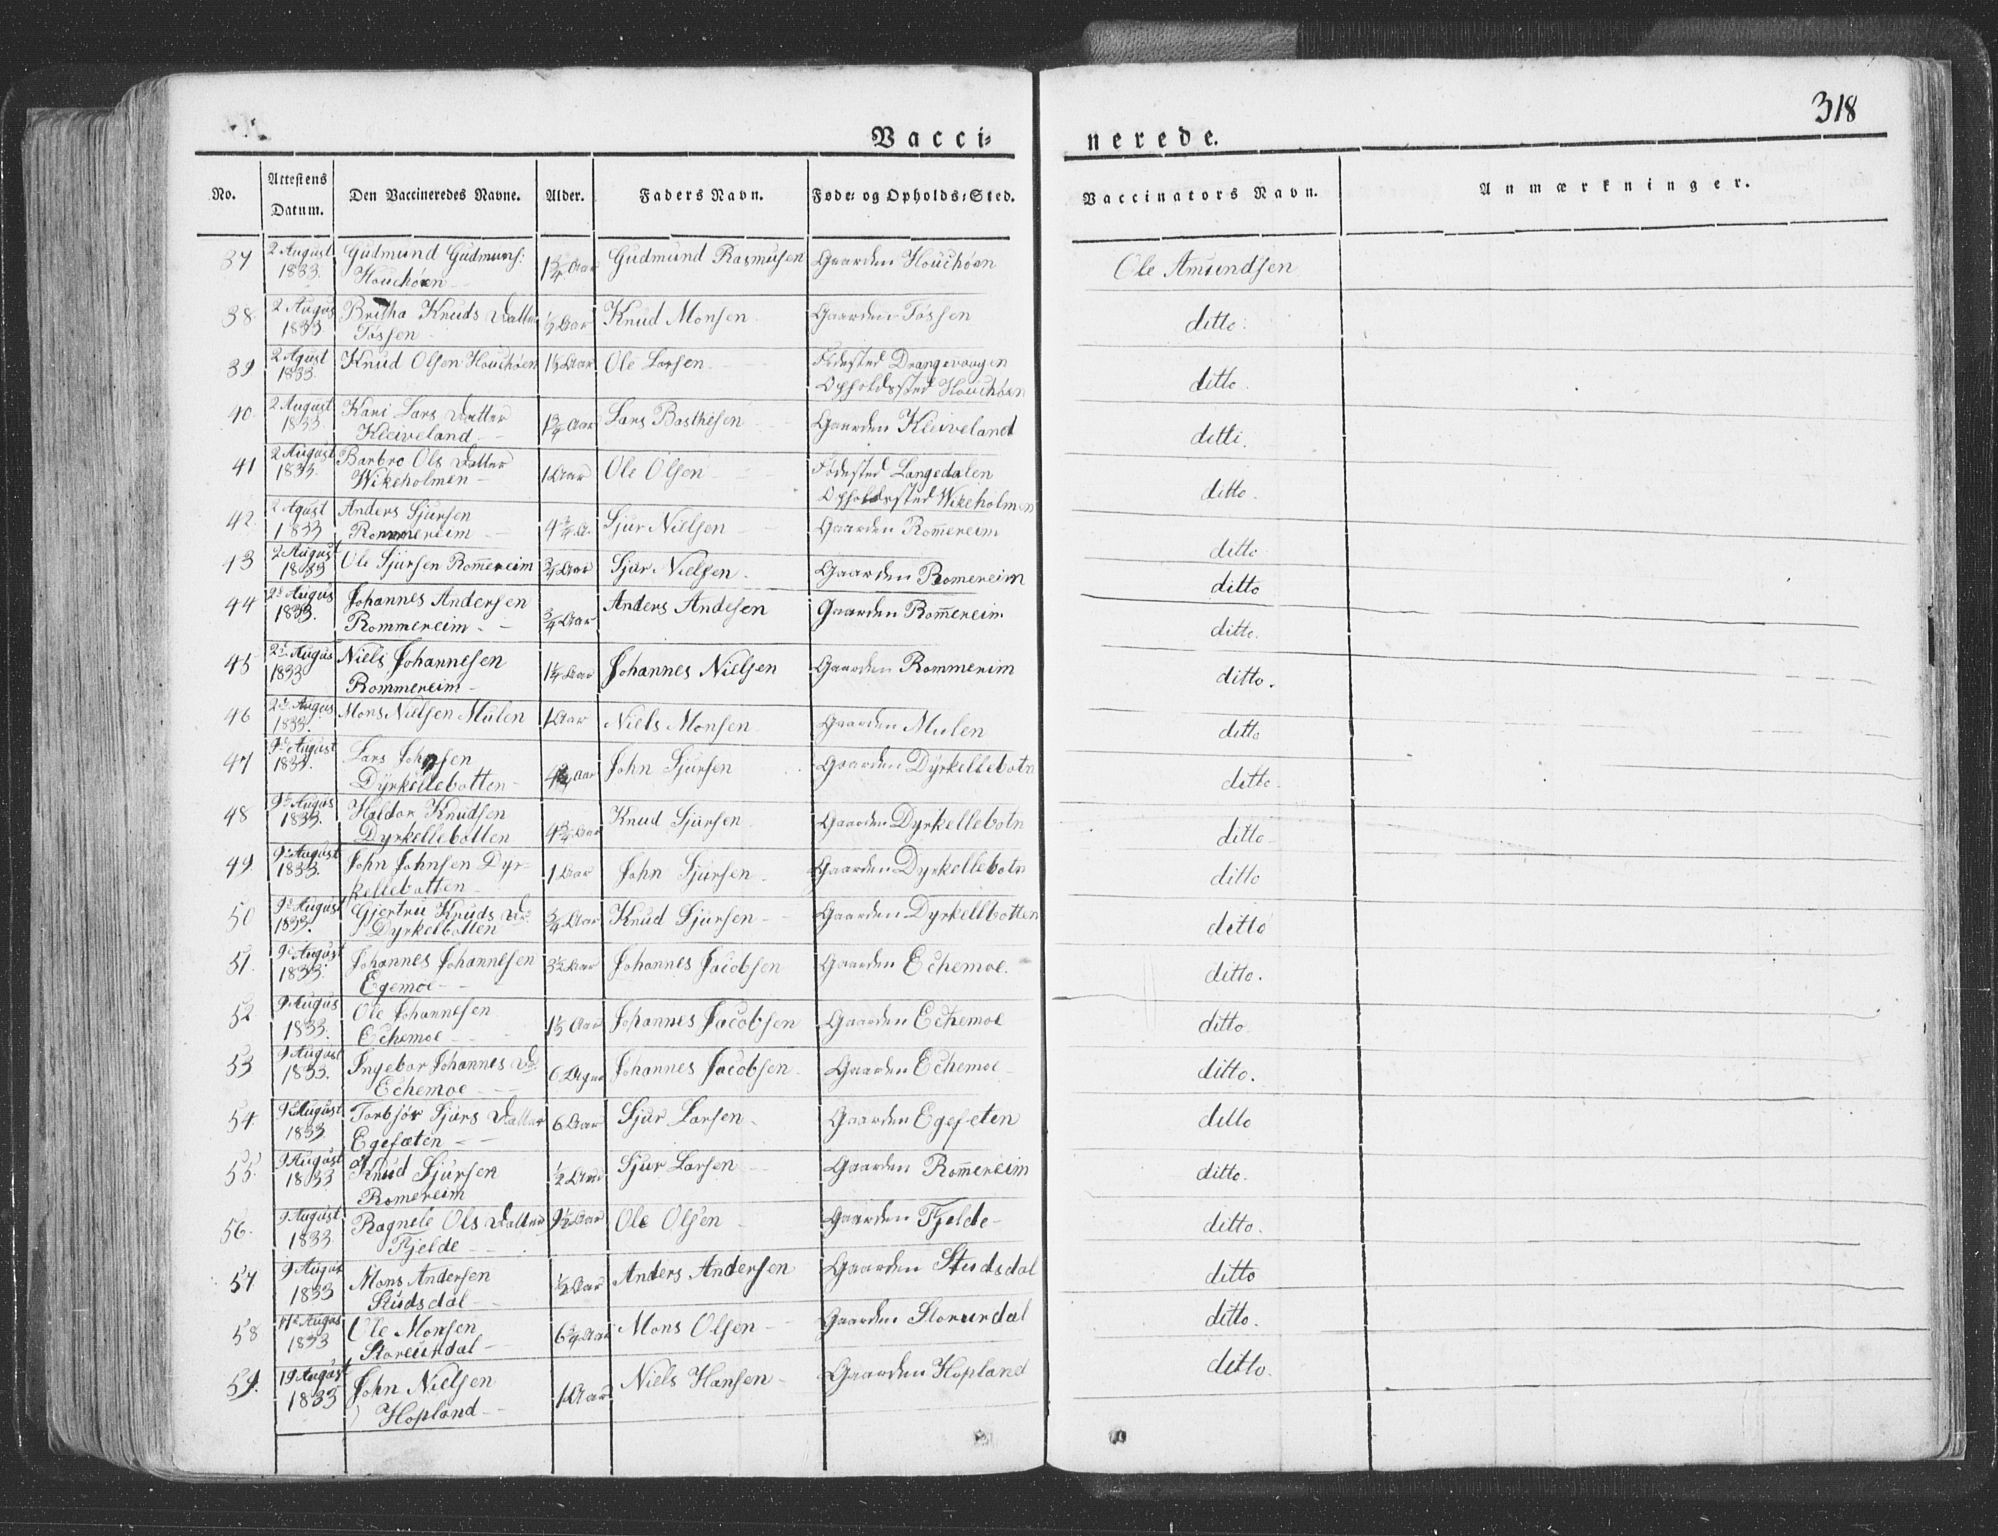 318
Vacci- nerede.
No. Attestens Datum. Den Vaccineredes Navne. Alder. Faders Navn. Føde- og Opholds-Sted. Vaccinators Navn. Anmærkninger.
37 2 August Gudmund Gudmuns: 1 3/4 Aar Gudmund Rasmusen Gaarden Houchøen Ole Amundsen
1833. Houchøen
38 2 Augus Britha Knuds Datter 1/2 Aar Knud Monsen Gaarden Tøssen ditto.
1833 Tøssen
39 2 Agust Knud Olsen Houchøen 1 1/2 Aar Ole Larsen Fødested Drangevaagen ditto.
1833. Opholdssted Houchøen
40 2 August Kari Lars Datter 1 3/4 Aar Lars Basthesen Gaarden Kleiveland ditti.
1833. Kleiveland
41 2 August Barbro Ols Datter 1 Aar Ole Olsen Fødested Langedalen ditto.
1833. Wikeholmen Opholdsted Wikeholmen
42. 2 Agust Anders Sjursen 4 3/4 A. Sjur Nielsen Gaarden Rom̄ereim ditto
1833 Rommereim
43 2 August Ole Sjursen Rom̄ereim 3/4 Aar Sjur Nielsen. Gaarden Romereim ditto
1833
44 2d Augus Johannes Andersen 3/4 Aar Anders Andesen Gaarden Rom̄ereim ditto.
1833. Rommereim
45 2d Augus Niels Johannesen 1 1/4 Aar Johannes Nielsen Gaarden Rommerim ditto.
1833 Rommereim
46 2d Augus Mons Nielsen Mulen 1 Aar Niels Monsen Gaarden Mulen ditto
1833.
47 9d August Lars Johnsen Aar John Sjursen Gaarden Dyrkellebotn ditto.
1833. Dyrkellebotten
48 9d Augus Haldor Knudsen 4 3/4 Aar Knud Sjursen Gaarden Dyrkellebotn ditto
1833. Dyrkellebotten
49. 9d August John Johnsen Dyr- 1 Aar John Sjursen. Gaarden Dyrkellebotn ditto
1833. kellebotten
50 9d August Gjertru Knuds Dr. 3/4 Aar Knud Sjursen Gaarden Dyrkellbotten ditto
1833. Dyrkelbotten
51. 9d August Johannes Johannesen 3 1/2 Aar Johannes Jacobsen Gaarden Echemoe. ditto.
1833. Egemoe
52 9 Augus Ole Johannesen 1 1/2 Aar Johannes Jacobsen Gaarden Echemoe ditto.
1833. Echemoe
53 9 August Ingebor Johannes Dr. 6 Johannes Jacobsen Gaarden Echemoe ditto.
1833. Echemoe
54. 9d August Torbjør Sjurs Datter 6 Aar Sjur Larsen Gaarden Egeseten ditto
1833 Egesæten
55. 9 August Knud Sjursen 1/2 Aar Sjur Larsen Gaarden Rom̄ereim ditto.
1833 Romereim
56. 9 August Ragnele Ols Datter 9 1/2 Aar Ole Olsen Gaarden Fjelde ditto.
1833 Fjelde
57 9 Augus Mons Andersen 1/2 Aar Anders Andersen Gaarden Studsdal ditto
1833 Studsdal
58 17d Augus Ole Monsen 6 3/4 Aar Mons Olsen Gaarden Storurdal ditto.
1833 Storeurdal
59. 19 August John Nielsen 1 Aar Niels Hansen Gaarden Hopland ditto.
1833 Hopland